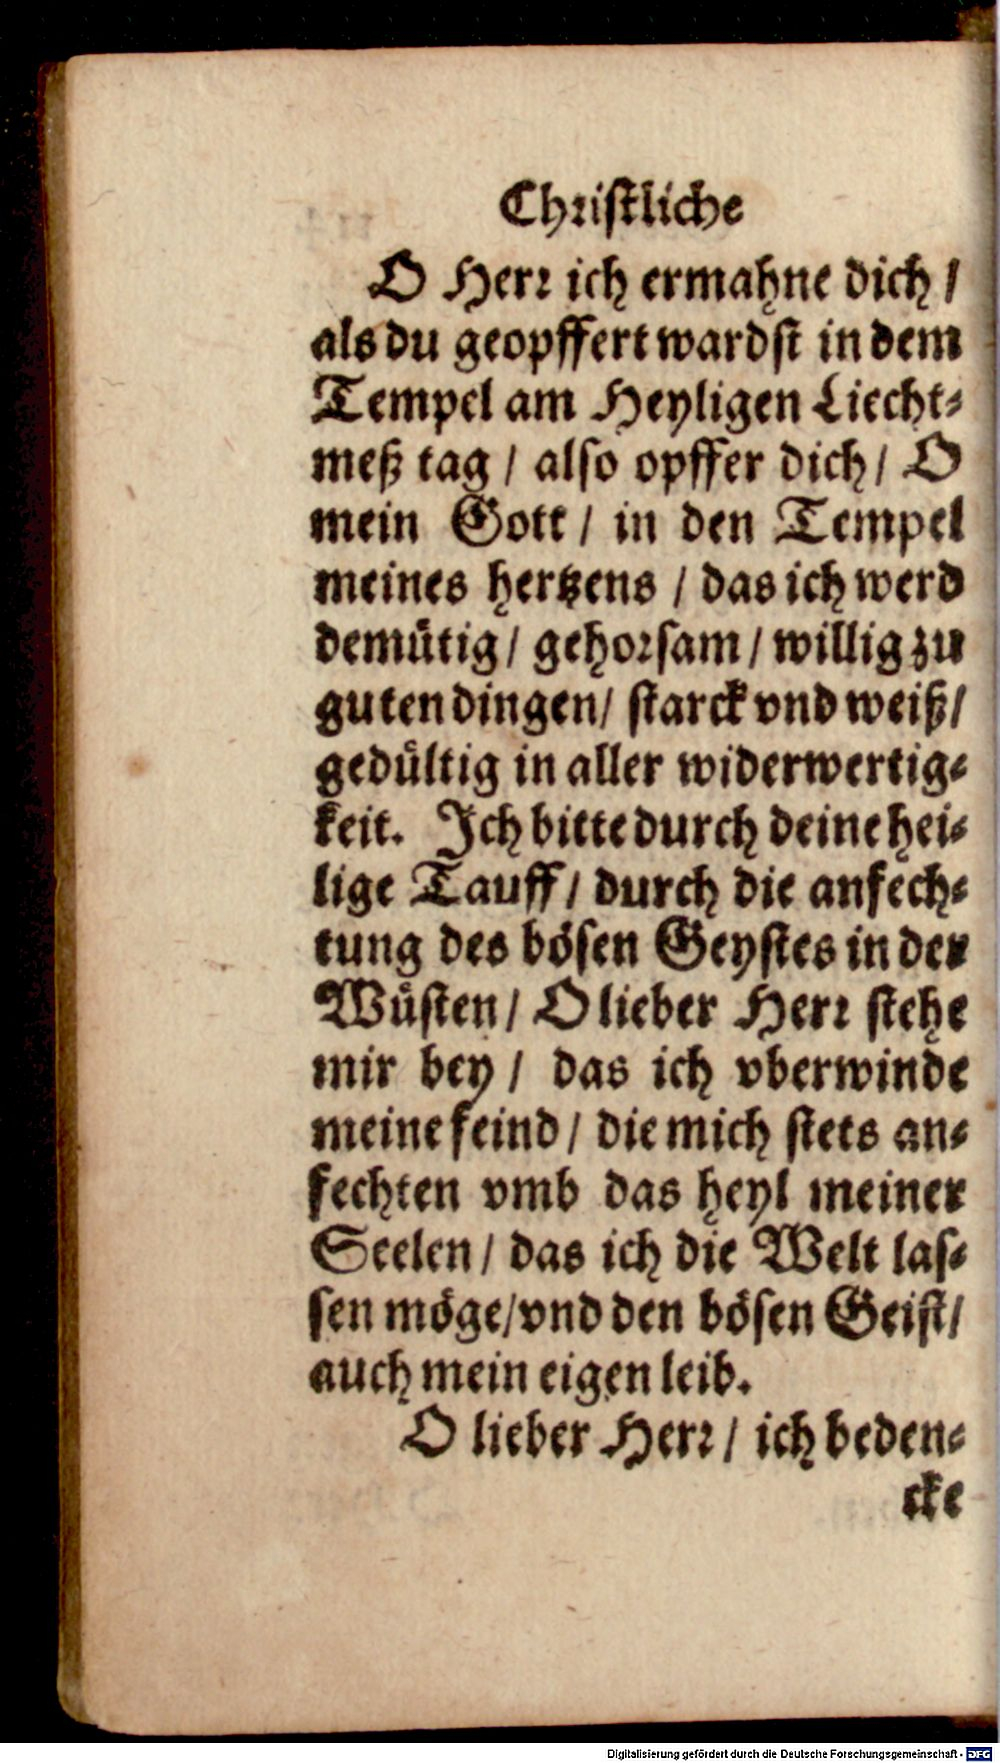 Christliche
O Herr ich ermahne dich /
als du geopffert wardst in dem
Tempel am Heyligen Liecht-
meß tag / also opffer dich / O
mein Gott / in den Tempel
meines hertzens / das ich werd
demütig / gehorsam / willig zu
guten dingen / starck vnd weiß /
gedültig in aller widerwertig-
keit. Ich bitte durch deine hei-
lige Tauff / durch die anfech-
tung des bösen Geystes in der
Wüsten / O lieber Herr stehe
mir bey / das ich vberwinde
meine feind / die mich stets an-
fechten vmb das heyl meiner
Seelen / das ich die Welt las-
sen möge / vnd den bösen Geist /
auch mein eigen leib.
O lieber Herr / ich beden-
cke
Digitalisierung gefördert durch die Deutsche Forschungsgemeinschaft - DFG